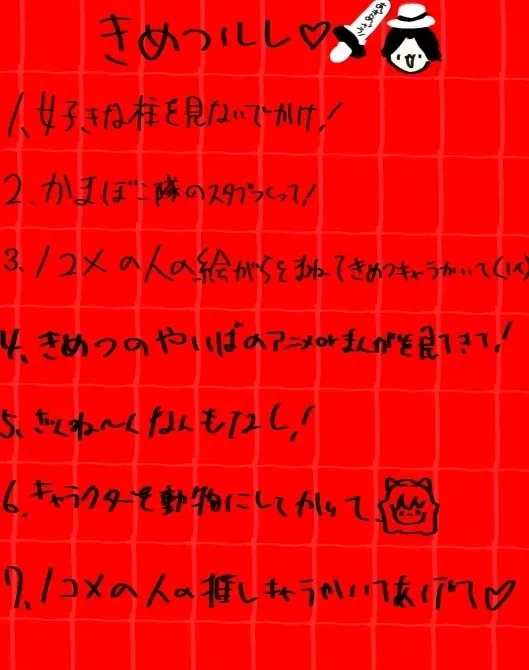 きめつルレ♡
1、好きな柱を見ないでかけ!
2.かまぼこ隊のスタブつくって!
3、1コメの人の絵がらをまねてきめつキャラかいて(1人)
4、きめつのやいばのアニメorまんがを見てきて!
5、ざんね〜んなんもなし!
6、キャラクターを動物にしてかいて
7、1コメの人の推しキャラかいてあげて♡